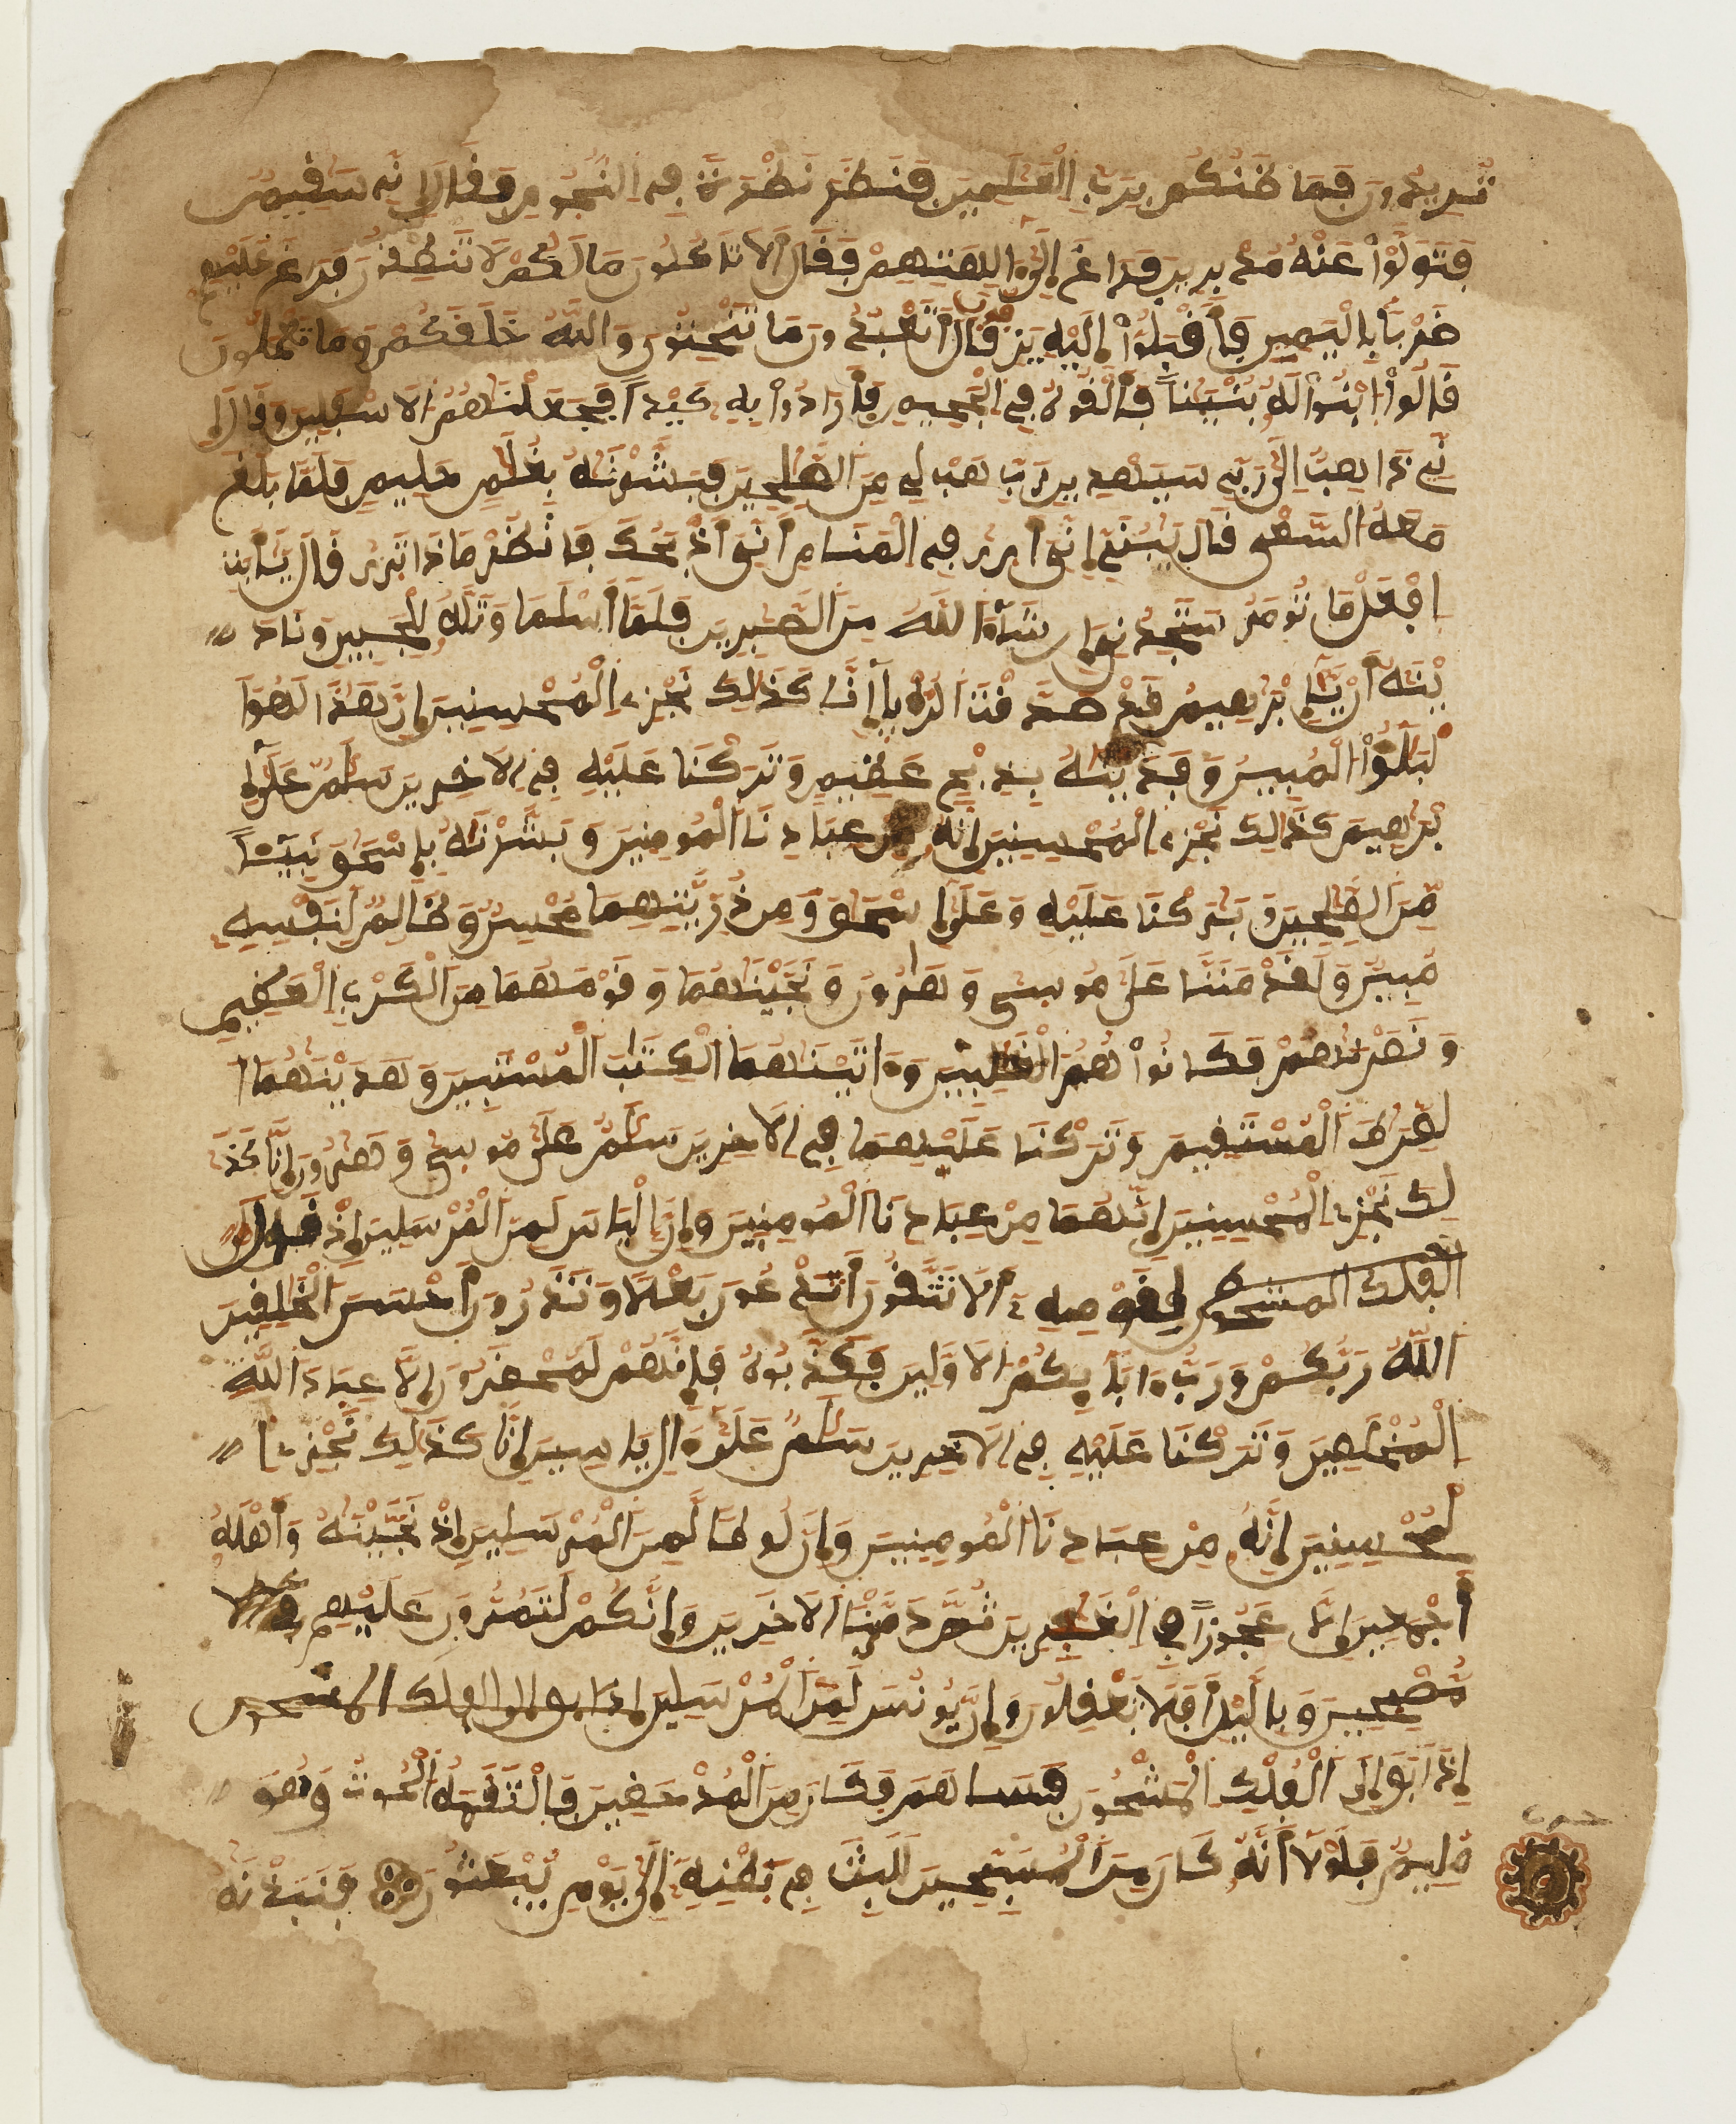 تُرِيدُونَ فَمَا ظَنُّكُم بِرَبِّ الْعَٰلَمِينَ فَنَظَرَ نَظْرَةً فِي النُّجُومِ فَقَالَ إِنِّي سَقِيمٌ
فَتَوَلَّوْاْ عَنْهُ مُدْبِرِينَ فَرَاغَ إِلَىٰ ءَالِهَتِهِمْ فَقَالَ أَلَا تَاكُلُونَ مَا لَكُمْ لَا تَنطِقُونَ فَرَاغَ عَلَيْهِمْ
ضَرْبَاً بِالْيَمِينِ فَأَقْبَلُوٓاْ إِلَيْهِ يَزِفُّونَ قَالَ أَتَعْبُدُونَ مَا تَنْحِتُونَ وَاللَّهُ خَلَقَكُمْ وَمَا تَعْمَلُونَ
قَالُواْ ابْنُواْ لَهُ بُنْيَٰناً فَأَلْقُوهُ فِي الْجَحِيمِ فَأَرَادُواْ بِهِ كَيْداً فَجَعَلْنَٰهُمُ الَاسْفَلِينَ وَقَالَ إِ
نِّي ذَاهِبٌ إِلَىٰ رَبِّي سَيَهْدِينِ رَبِّ هَبْ لِي مِنَ الصَّٰلِحِينَ فَبَشَّرْنَٰهُ بِغُلَٰمٍ حَلِيمٍ فَلَمَّا بَلَغَ
مَعَهُ السَّعْىَ قَالَ يَٰبُنَيِّ إِنِّيَ أَرَىٰ فِي الْمَنَامِ أَنِّيَ أَذْبَحُكَ فَانظُرْ مَاذَا تَرَىٰ قَالَ يَٰٓأَبَتِ
افْعَلْ مَا تُومَرُ سَتَجِدُنِيَ إِن شَآءَ اللَّهُ مِنَ الصَّٰبِرِينَ فَلَمَّآ أَسْلَمَا وَتَلَّهُ لِلْجَبِينِ وَنَٰدَ
يْنَٰهُ أَنْ يَّٰٓإِبْرَٰهِيمُ قَدْ صَدَّقْتَ الرُّءْيَآ إِنَّا كَذَٰلِكَ نَجْزِي الْمُحْسِنِينَ إِنَّ هَٰذَا لَهُوَ ا
لْبَلَٰٓؤُاْ الْمُبِينُ وَفَدَيْنَٰهُ بِذِبْحٍ عَظِيمٍ وَتَرَكْنَا عَلَيْهِ فِي الَاخِرِينَ سَلَٰمٌ عَلَىٰٓ إِ
بْرَٰهِيمَ كَذَٰلِكَ نَجْزِي الْمُحْسِنِينَ إِنَّهُ مِنْ عِبَادِنَا الْمُومِنِينَ وَبَشَّرْنَٰهُ بِإِسْحَٰقَ نَبِيٓـٔاً
مِّنَ الصَّٰلِحِينَ وَبَٰرَكْنَا عَلَيْهِ وَعَلَىٰٓ إِسْحَٰقَ وَمِن ذُرِّيَّتِهِمَا مُحْسِنٌ وَظَالِمٌ لِّنَفْسِهِ
مُبِينٌ وَلَقَدْ مَنَنَّا عَلَىٰ مُوسَىٰ وَهَٰرُونَ وَنَجَّيْنَٰهُمَا وَقَوْمَهُمَا مِنَ الْكَرْبِ الْعَظِيمِ
وَنَصَرْنَٰهُمْ فَكَانُواْ هُمُ الْغَٰلِبِينَ وَءَاتَيْنَٰهُمَا الْكِتَٰبَ الْمُسْتَبِينَ وَهَدَيْنَٰهُمَا ا
لصِّرَٰطَ الْمُسْتَقِيمَ وَتَرَكْنَا عَلَيْهِمَا فِي الَاخِرِينَ سَلَٰمٌ عَلَىٰ مُوسَىٰ وَهَٰرُونَ إِنَّا كَذَٰ
لِكَ نَجْزِي الْمُحْسِنِينَ إِنَّهُمَا مِنْ عِبَادِنَا الْمُومِنِينَ وَإِنَّ إِلْيَاسَ لَمِنَ الْمُرْسَلِينَ إِذْ قَالَ
الفلك المشحون لِقَوْمِهِ أَلَا تَتَّقُونَ أَتَدْعُونَ بَعْلًا وَتَذَرُونَ أَحْسَنَ الْخَٰلِقِينَ
اللَّهُ رَبُّكُمْ وَرَبُّ ءَابَآئِكُمُ الَاوَّلِينَ فَكَذَّبُوهُ فَإِنَّهُمْ لَمُحْضَرُونَ إِلَّا عِبَادَ اللَّهِ
الْمُخْلَصِينَ وَتَرَكْنَا عَلَيْهِ فِي الَاخِرِينَ سَلَٰمٌ عَلَىٰٓ ءَالِ يَاسِينَ إِنَّا كَذَٰلِكَ نَجْزِي ا
لْمُحْسِنِينَ إِنَّهُ مِنْ عِبَادِنَا الْمُومِنِينَ وَإِنَّ لُوطًا لَّمِنَ الْمُرْسَلِينَ إِذْ نَجَّيْنَٰهُ وَأَهْلَهُ
أَجْمَعِينَ إِلَّا عَجُوزاً فِي الْغَٰبِرِينَ ثُمَّ دَمَّرْنَا الَاخَرِينَ وَإِنَّكُمْ لَتَمُرُّونَ عَلَيْهِم
مُّصْبِحِينَ وَبِاللَّيْلِ أَفَلَا تَعْقِلُونَ وَإِنَّ يُونُسَ لَمِنَ الْمُرْسَلِينَ إذ ابق الى الفلك المشحون
إِذَ أَبَقَ إِلَى الْفُلْكِ الْمَشْحُونِ فَسَاهَمَ فَكَانَ مِنَ الْمُدْحَضِينَ فَالْتَقَمَهُ الْحُوتُ وَهُوَ
مُلِيمٌ فَلَوْلَآ أَنَّهُ كَانَ مِنَ الْمُسَبِّحِينَ لَلَبِثَ فِي بَطْنِهِ إِلَىٰ يَوْمِ يُبْعَثُونَ فَنَبَذْنَٰهُ